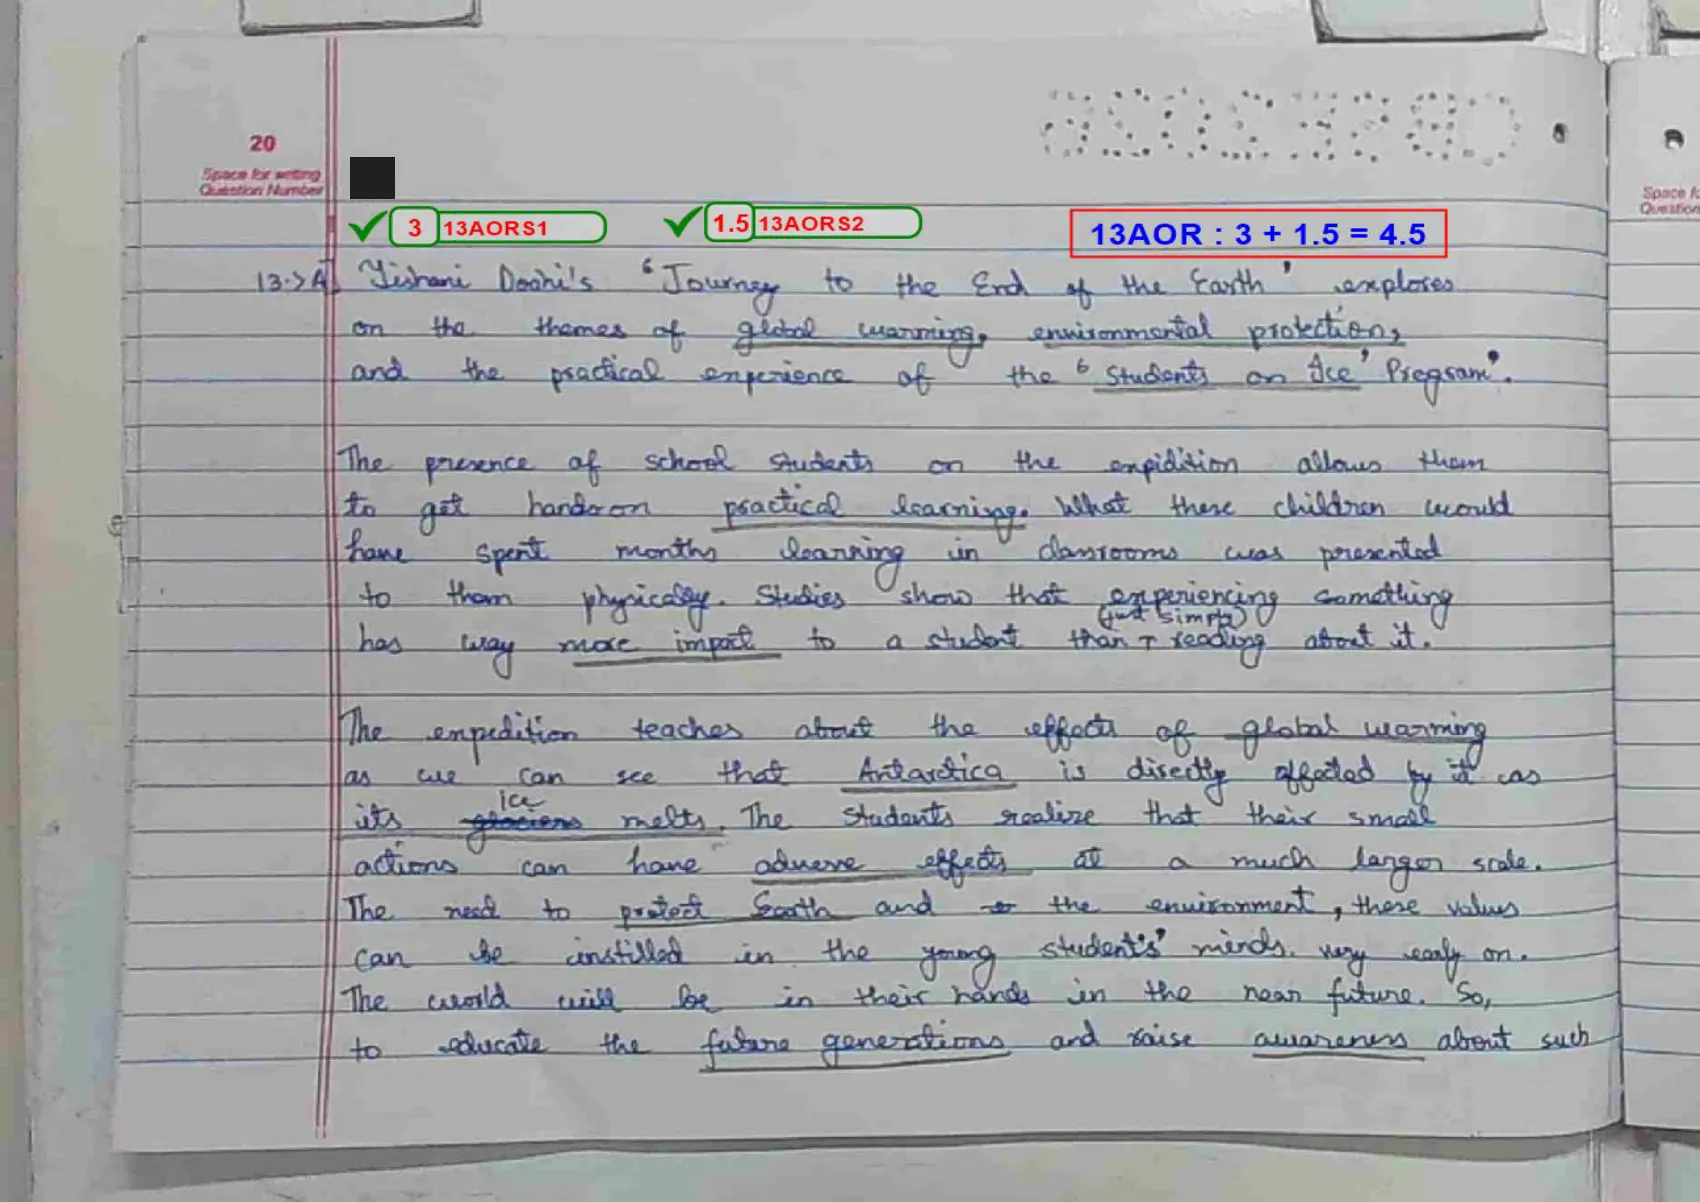 20
Space for writing
Question Number
3 13AORS1 1.5 13AORS2 13AOR : 3 + 1.5 = 4.5
13.> A] Tishani Doshi's 'Journey to the End of the Earth' explores
on the themes of global warming, environmental protection,
and the practical experience of the 'Students on Ice' Program'.
The presence of school students on the expidition allows them
to get hands on practical learning. What these children would
have spent months learning in classrooms was presented
to them physically. Studies show that experiencing something
(just simply)
has way more impact to a student than reading about it.
The expedition teaches about the effects of global warming
as we can see that Antarctica is directly affected by it as
ice
its glaciers melts. The students realize that their small
actions can have adverse effects at a much larger scale.
The need to protect Earth and the environment, these values
can be instilled in the young student's' minds. very early on.
The world will be in their hands in the near future. So,
to educate the future generations and raise awareness about such
Space fo
Question